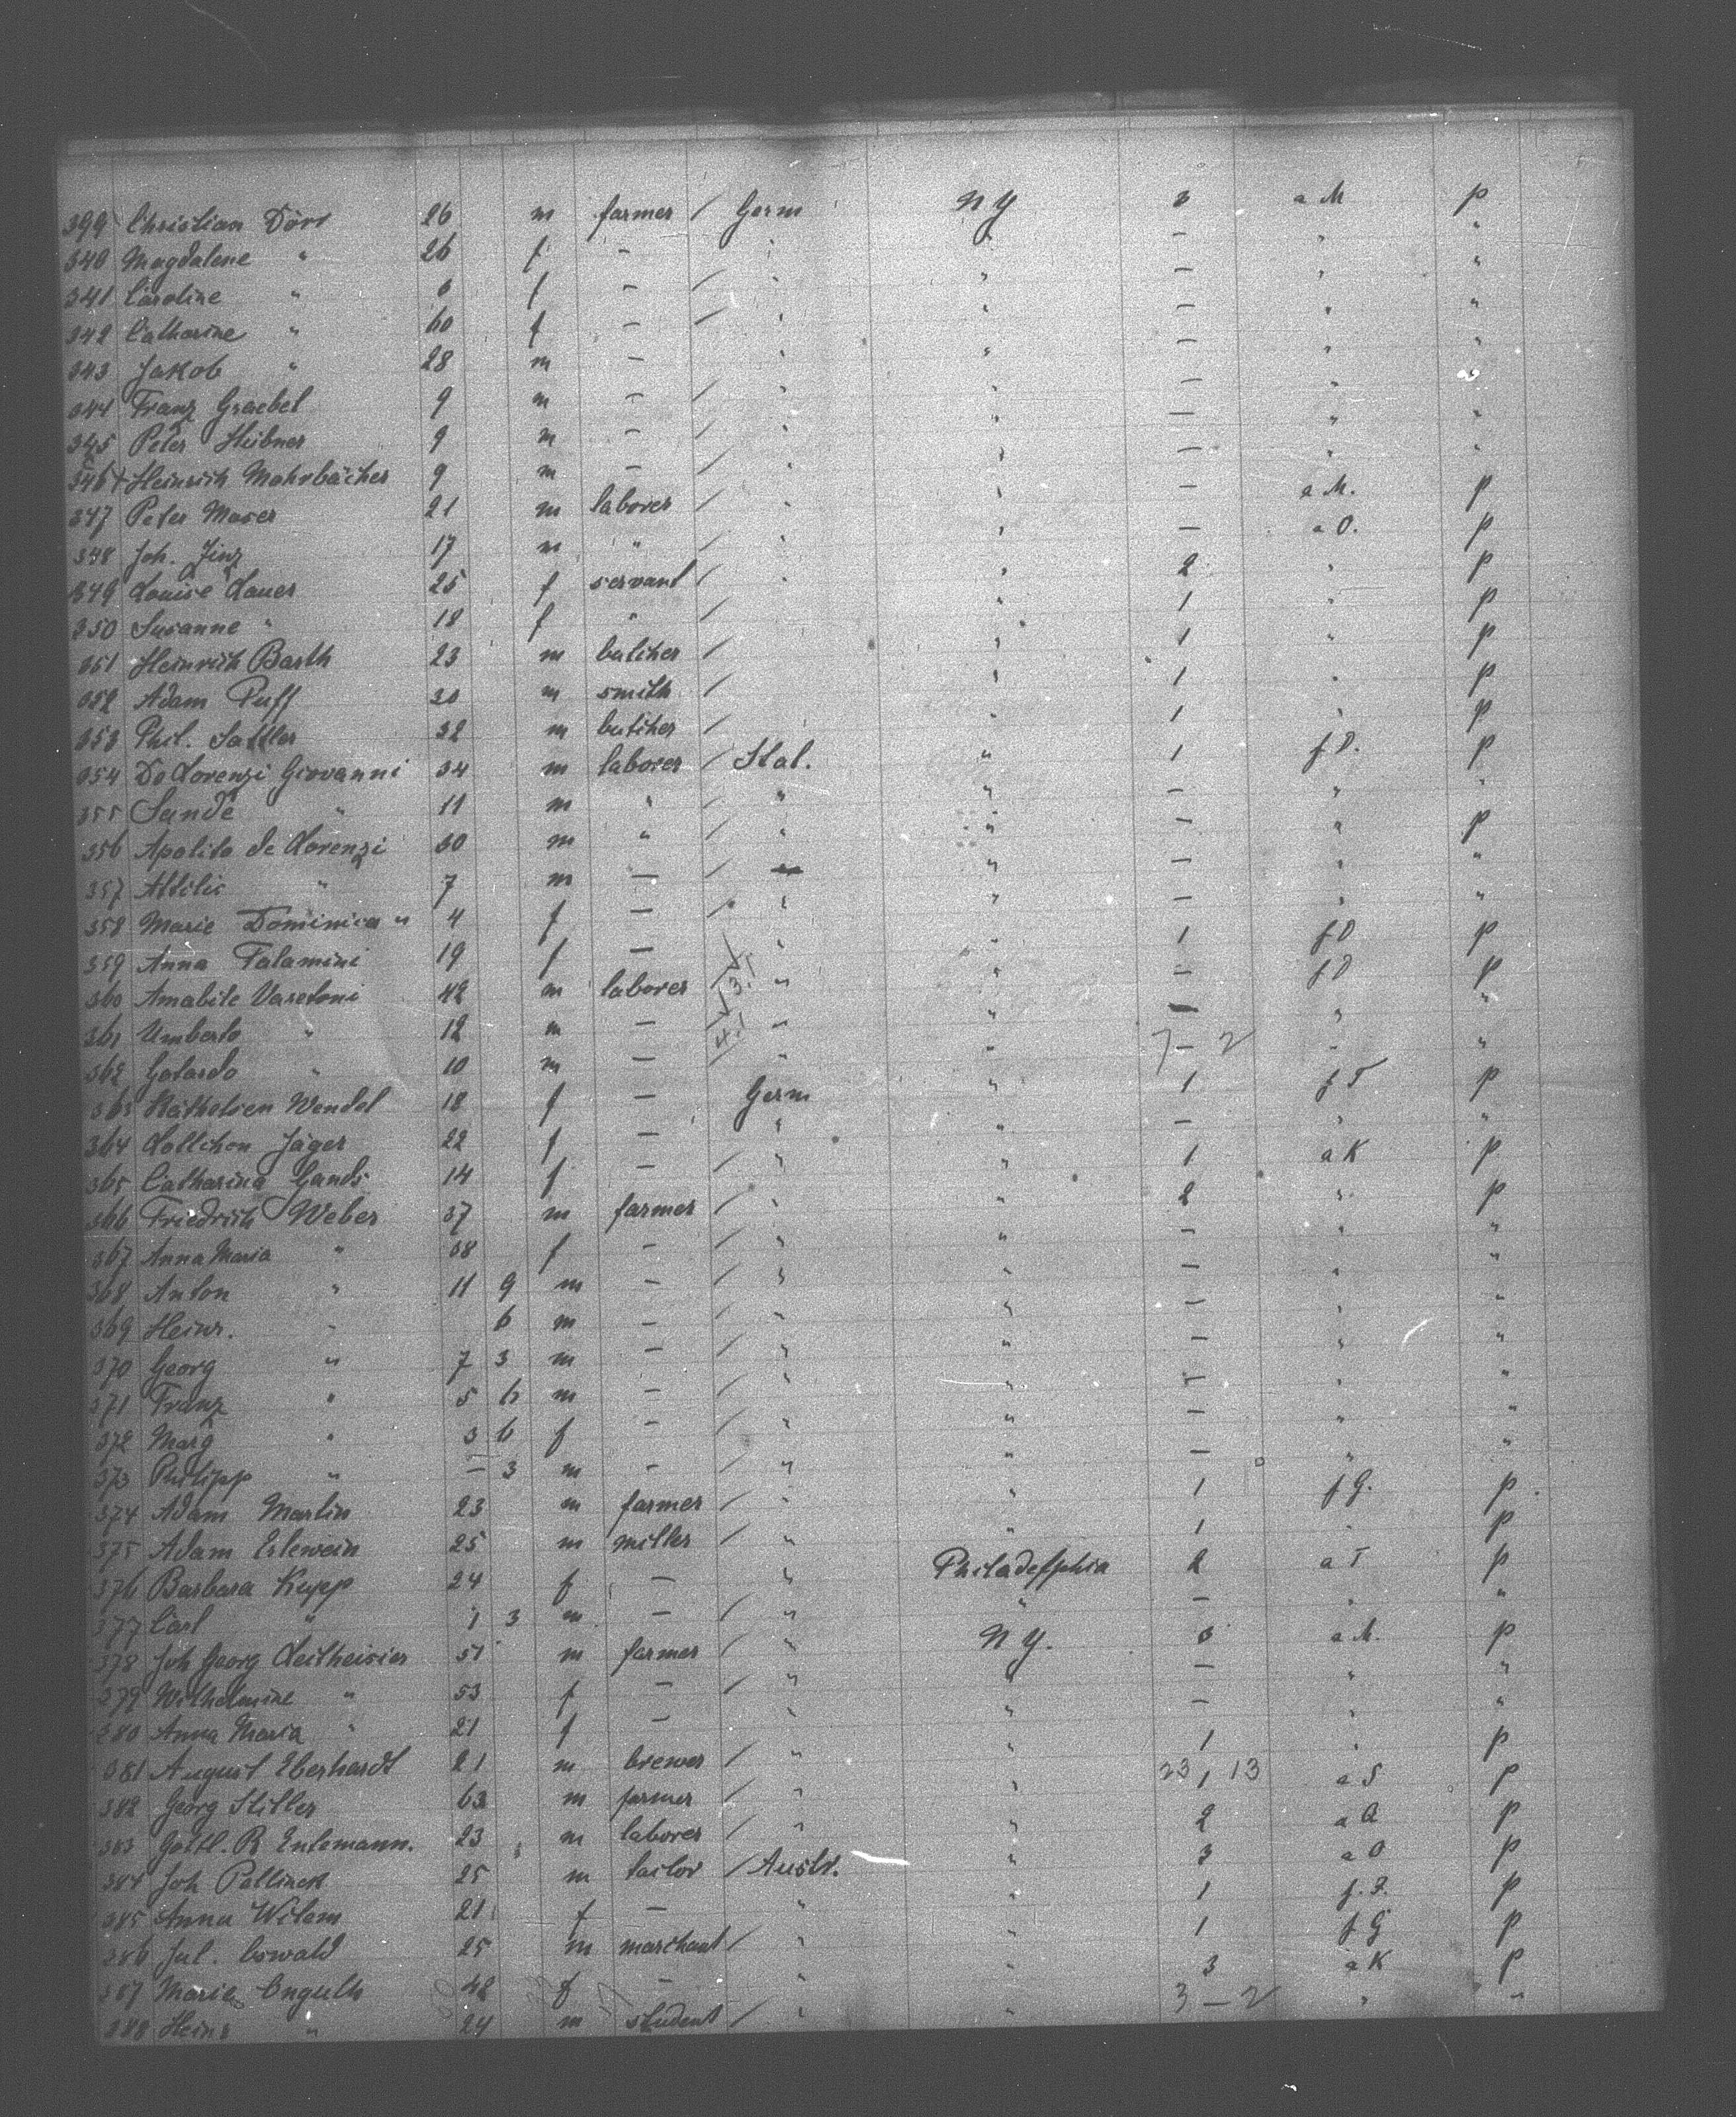 399 Christian Dörr 26 m farmer / Germ N Y 3 a M p
340 Magdalene " 26 f — " " — " "
341 Caroline " 6 f — / " " — " "
342 Catharine " 60 f — / " " — " "
343 Jakob " 28 m — " " — " "
344 Franz Graebel 9 m — / " " — " "
345 Peter Hübner 9 m — / " " — " "
346 + Heinrich Mohrbächer 9 m — / " " — " "
347 Peter Moser 21 m laborer / " " — a M. p
348 Joh. Jinz 17 m " / " " — a O. p
349 Louise Lauer 25 f servant / " " 2 " p
350 Susanne " 18 f " / " 1 " p
351 Heinrich Barth 23 m butcher / " 1 " p
352 Adam Puff 30 m smith / " 1 " p
353 Phil. Sattler 32 m butcher / " 1 " p
354 De Lorenzi Giovanni 34 m laborer / Ital. " 1 f D. p
355 Sande " 11 m " / " " — " "
356 Apolito de Lorenzi 30 m " / " " — " p
357 Attilic " 7 m — / " " — " "
358 Marie Dominica " 4 f — / " " — " "
359 Anna Talamini 19 f — " " 1 f D p
360 Amabile Varetoni 42 m laborer / " " — f D p
361 Umberto " 12 m — / " " — " "
362 Gotardo " 10 m — / " " 7 — 2 " "
363 Käthchen Wendel 18 f — Germ " 1 f T p
364 Lottchen Jäger 22 f — " " — " "
365 Catharina Gands 14 f — / " " 1 a K p
366 Friedrich Weber 37 m farmer / " " 2 " p
367 Anna Maria " 38 f — / " " — " "
368 Anton " 11 9 m — / " " — " "
369 Heinr. " 6 m — / " " — " "
370 Georg " 7 3 m — / " " — " "
371 Franz " 5 6 m — / " " — " "
372 Marg " 3 6 f — / " " — " "
373 Philipp " — 3 m — / " " — " "
374 Adam Martin 23 m farmer / " " 1 f G. p
375 Adam Erlewein 25 m miller / " " 1 " p
376 Barbara Kupp 24 f — " Philadelphia 2 a T p
377 Carl " 1 3 m — / " " — " "
378 Joh Georg Leitheisier 51 m farmer / " N Y. 3 a M. p
379 Wilhelmine " 53 f — / " " — " "
380 Anna Maria " 21 f — " " — " "
381 August Eberhardt 21 m brewer / " " 1 " p
382 Georg Stiller 63 m farmer / " " 23 1 13 a S p
383 Gottl. R Entemann. 23 m laborer / " " 2 a A p
384 Joh Pollinck 25 m tailor / Austr. " 3 a O p
385 Anna Wilem 21 f — " " 1 f. F. p
386 Jul. Oswald 25 m marchant / " " 1 f G p
387 Marie Onguth 48 f — " " 3 a K p
388 Heinr " 24 m student / " " 3 — 2 " "